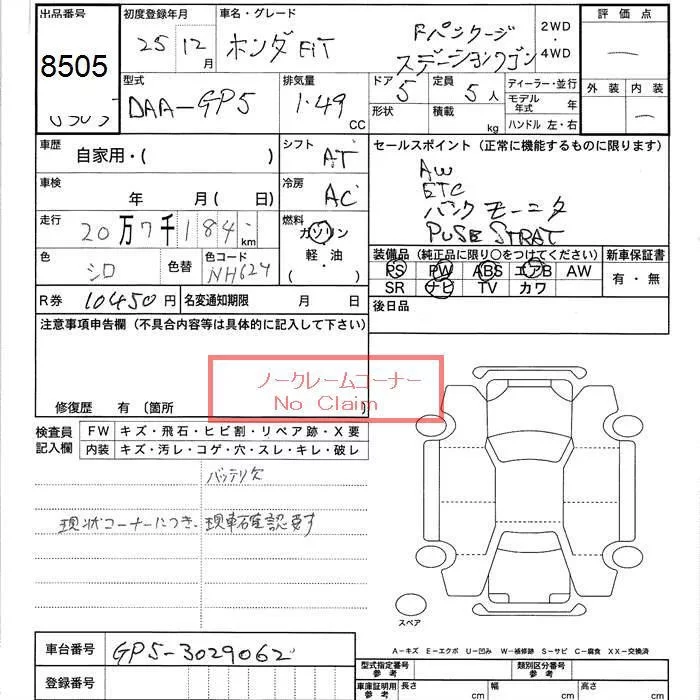 出品番号 初度登録年月 車名・グレード 2WD ・ 4WD 評価点
8505 25 12月 ホンダ FiT Fパッケージ
ステーションワゴン
外装 内装
型式 排気量 ドア 定員 ディーラー・並行
DAA-GP5 1.49 CC 5 5人 モデル年式 年
形状 積載 kg ハンドル 左・右
車歴 自家用・( ) シフト AT セールスポイント (正常に機能するものに限ります)
AW
ETC
バック モーニタ
PUSE STRAT
車検 年 月( 日) 冷房 AC
走行 20万7千184 km 燃料 ガソリン 軽油 ・ ( )
装備品 (純正品に限り○をつけてください) 新車保証書
PS PW ABS エアB AW 有・無
SR ナビ TV カワ
色 シロ 色替 色コード NH624
R券 10450円 名変通知期限 月 日 後日品
注意事項申告欄 (不具合内容等は具体的に記入して下さい)
ノークレームコーナー
No Claim
修復歴 有 (箇所 )
検査員記入欄 FW キズ・飛石・ヒビ割・リペア跡・X要
内装 キズ・汚レ・コゲ・穴・スレ・キレ・破レ
バッテリ欠
現状コーナーにつき、現車確認要す
スペア
A-キズ E-エクボ U-凹み W-補修跡 S-サビ C-腐食 XX-交換済
車台番号 GP5-3029062
登録番号
型式指定番号 参考 類別区分番号 参考
車庫証明用 参考 長さ cm 幅 cm 高さ cm